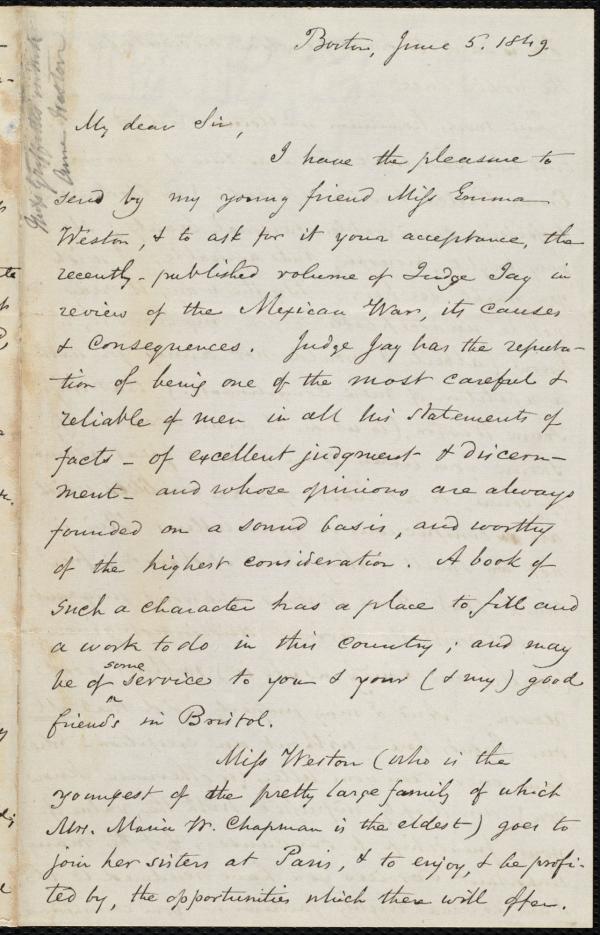 Boston, June 5. 1849
My dear Sir,
I have the pleasure to
send by my young friend Miss Emma
Weston, & to ask for it your acceptance, the
recently-published volume of Judge Jay in
review of the Mexican War, its causes
& consequences. Judge Jay has the reputa-
tion of being one of the most careful &
reliable of men in all his statements of
facts - of excellent judgment & discern-
ment - and whose opinions are always
founded on a sound basis, and worthy
of the highest consideration. A book of
such a character has a place to fill and
a work to do in this country; and may
be of some service to you & your (& my) good
friends in Bristol.
Miss Weston (who is the
youngest of the pretty large family of which
Mrs. Maria W. Chapman is the eldest) goes to
join her sisters at Paris, & to enjoy, & be profi-
ted by, the opportunities which there will offer.
Anne Weston